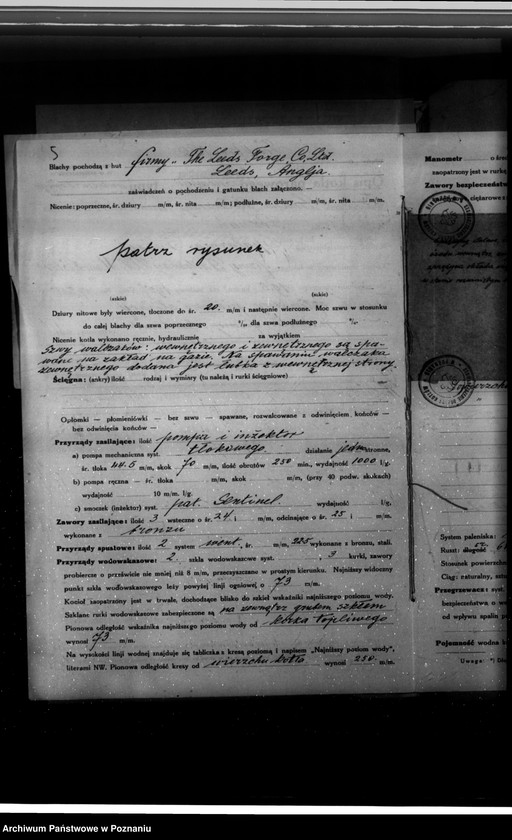 5
Blachy pochodzą z hut firmy „The Leeds Forge, Co, Ltd.
Leeds, Anglja
zaświadczeń o pochodzeniu i gatunku blach załączono.
Nicenie: poprzeczne, śr. dziury m/m, śr. nita m/m; podłużne, śr. dziury m/m, śr. nita m/m.
patrz rysunek
(szkic) (szkic)
Dziury nitowe były wiercone, tłoczone do śr. 20. m/m i następnie wiercone. Moc szwu w stosunku
do całej blachy dla szwa poprzecznego %, dla szwa podłużnego %.
Nicenie kotła wykonano ręcznie, hydraulicznie za wyjątkiem
Szwy walczaków: wewnętrznego i zewnętrznego są spa-
wane na zakład na gazie. Na spawaniu walczaka
zewnętrznego dodana jest łubka z wewnętrznej strony.
Ściągna: (ankry) ilość rodzaj i wymiary (tu należą i rurki ściągniowe)
Opłomki — płomieniówki — bez szwu — spawane, rozwalcowane z odwinięciem końców —
bez odwinięcia końców —
Przyrządy zasilające: ilość pompa i inżektor
a) pompa mechaniczna syst. tłokowego działanie jednostronne,
śr. tłoka 44.5 m/m, skok 70 m/m, ilość obrotów 250 min., wydajność 1000 l/g.
b) pompa ręczna — śr. tłoka m/m, skok m/m, (przy 40 podw. skokach)
wydajność 10 m/m. l/g.
c) smoczek (inżektor) syst. pat. Sentinel wydajność l/g.
Zawory zasilające: ilość 3 wsteczne o śr. 24 i m/m, odcinające o śr. 25 i m/m.
wykonane z bronzu
Przyrządy spustowe: ilość 2 system went., śr. m/m, 225 wykonane z bronzu, stali.
Przyrządy wodowskazowe: 2. szkła wodowskazowe syst. 3 kurki, zawory
probiercze o prześwicie nie mniej niż 8 m/m, przeczyszczane w prostym kierunku. Najniższy widoczny
punkt szkła wodowskazowego leży powyżej linji ogniowej o 73 m/m.
Kocioł zaopatrzony jest w trwałe, dochodzące blisko do szkieł wskaźniki najniższego poziomu wody.
Szklane rurki wodowskazowe zabezpieczone są na zewnątrz grubem szkłem
Pionowa odległość wskaźnika najniższego poziomu wody od
wynosi 73 m/m.
Na wysokości linji wodnej znajduje się tabliczka z kresą poziomą i napisem „Najniższy poziom wody",
literami NW. Pionowa odległość kresy od wierzchu kotła wynosi 250. m/m.
Manometr o śre
zaopatrzony jest w rurkę
Zawory bezpieczeństwa
śr. ciężarowe z
System paleniska:
Ruszt: długość
Stosunek powierzchn
Ciąg: naturalny, sztu
Przegrzewacz: syst
bezpieczeństwa o w
od wpływu spalin p
Pojemność wodna k
Uwaga *)
Archiwum Państwowe w Poznaniu